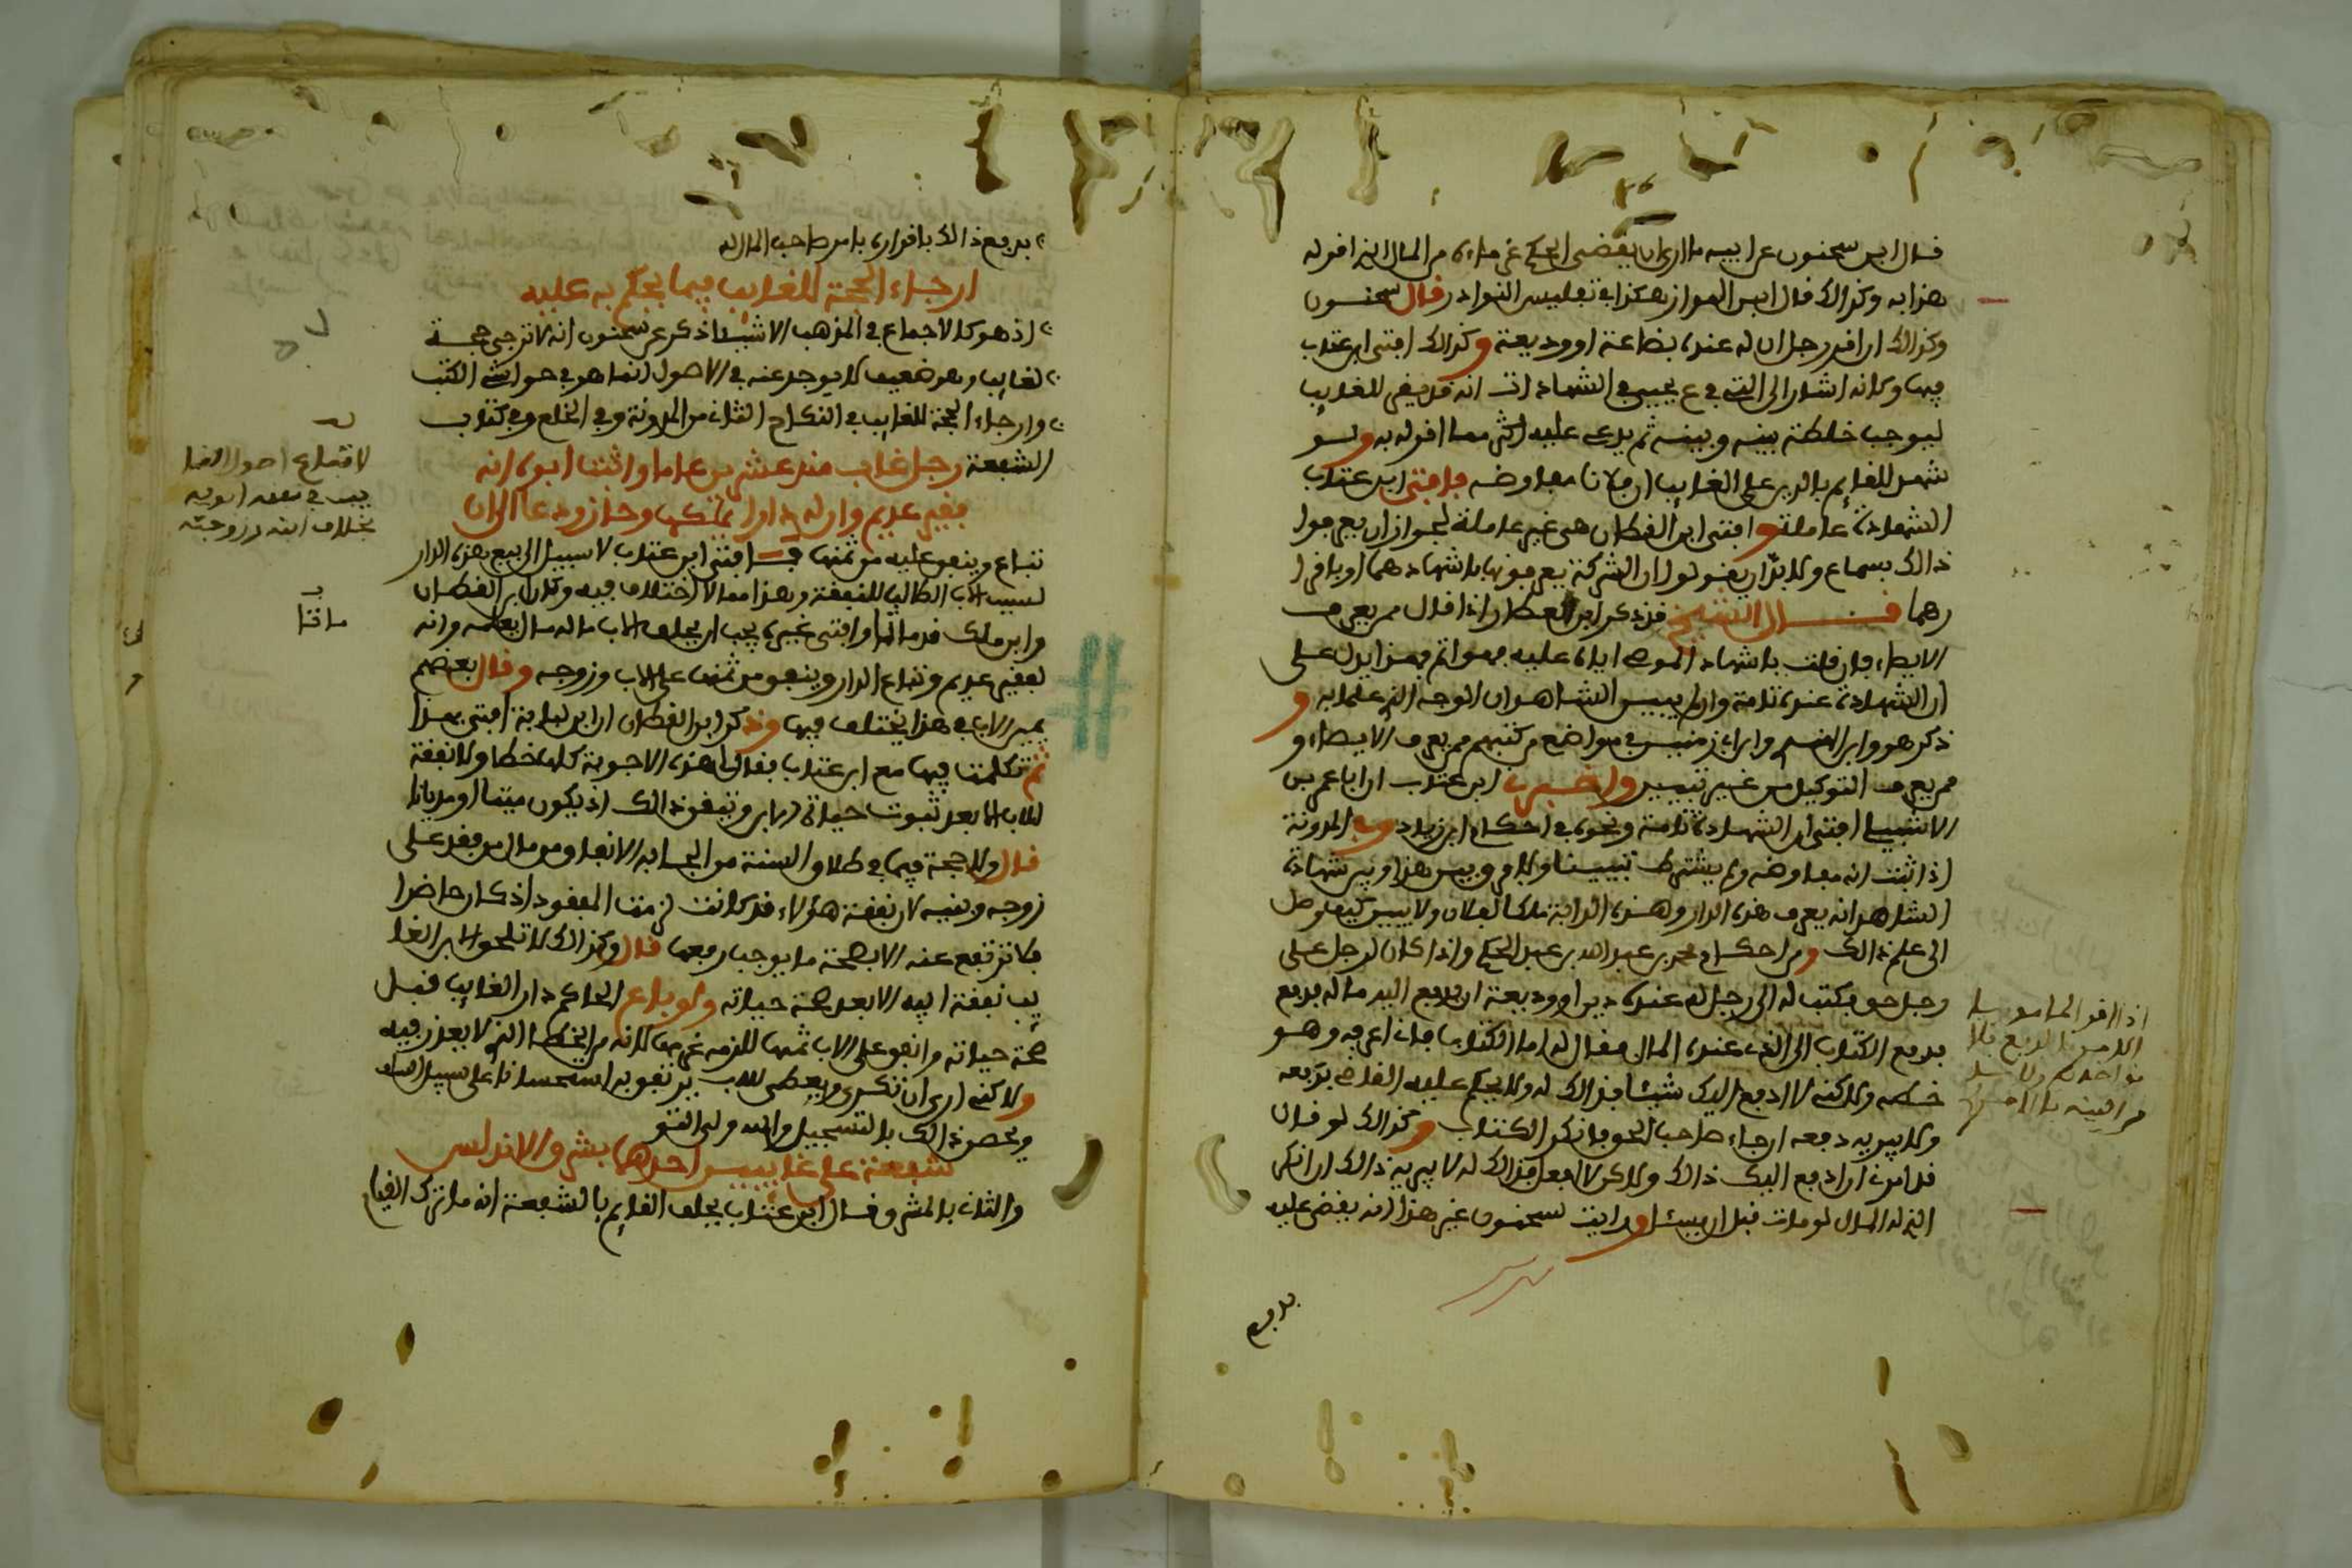 قال ابن سحنون عن ابيه ما ارى ان يقضي الحكم عن ماء من المال الذي اقر له
هذا به وكذلك قال ابن المواز هكذا في تفليس النوادر وقال سحنون
وكذالك ان اقر رجل ان له عنده بضاعة او وديعة وكذالك افتى ابن عتاب
فيها وكانه اشار الى التي في ع يحيى في الشهادات انه قد يقر للغايب
ليوجب خلطة بينه وبينه ثم يدعي عليه اكثر مما اقر له به ولو
شهد للقايم بالدين على الغايب ان فلانا مفاوضه فافتى ابن عتاب
الشهادة عاملة وافتى ابن القطان هي غير عاملة لجواز ان يعرفوا
ذالك بسماع ولا بد ان يقولوا ان الشركة يعرفونها باشهادهما او باقرا
رهما قال الشيخ قد ذكر ابن العطار اذا قال ممن يعرف
الايصاء فان قلت باشهاد الموصي اياه عليه فهو اتم فهذا يدل على
ان الشهادة عنده تامة وان لم يبين الشاهدان الوجه الذي علما به و
ذكر هو وابن الهندي وابن ابي زمنين في مواضع من كتبهم ممن يعرف الايصاء و
ممن يعرف التوكيل من غير تبيين واخبرني ابن عتاب ان ابا عمر بن
الاشبيلي افتى ان الشهادة تامة ونحوه في احكام ابن زياد وفي المدونة
اذا ثبت انه مفاوضه ولم يشترط تبيينا ولا فرق بين هذا وبين شهادة
الشاهد انه يعرف هذه الدار وهذه الدابة ملكا لفلان ولا يبين كيف وصل
الى علم ذالك ومن احكام محمد بن عبد الله بن عبد الحكم واذا كان لرجل على
رجل حق فكتب له الى رجل له عنده دين او وديعة ان يدفع اليه ماله فدفع
فدفع الكتاب الى الذي عنده المال فقال له اما الكتاب فانا اعرفه وهو
خطه ولكنه لا ادفع اليك شيئا فذالك له ولا يحكم عليه القاضي بدفعه
ولا يبريه دفعه ان جاء صاحب الحق فانكر الكتاب وكذالك لو قال
قد امرني ان ادفع اليك ذالك ولاكن لا افعل فذالك له لا يبريه ذالك ان انكر
الذي له المال لو مات قبل ان يبينا ورايت لسحنون غير هذا انه يقضي عليه
يدفع
اذا اقر المامور
يدفع ذالك باقراره بامر صاحب المال له
ارجاء الحجة للغايب فيما يحكم به عليه
اذ هو كالاجماع في المذهب الا شيئا ذكر عن سحنون انه لا ترجى حجة
لغايب وهو ضعيف لا يوجد عنه في الاصول انما هو في حواشي الكتب
وارجاء الحجة للغايب في النكاح الثاني من المدونة وفي الخلع وفي كتاب
الشفعة رجل غاب منذ عشرين عاما واثبت ابوه انه
فقير عديم وان له دارا يملكها وحازوه دعا الى ان
تباع وينفق عليه من ثمنها فافتى ابن عتاب لا سبيل الى بيع هذه الدار
لسبب الاب الطالب للنفقة وهذا مما لا اختلاف فيه وكان ابن القطان
وابن ملك قد مالا وافتى غيره يجب ان يحلف الاب ماله مال يعلمه وانه
لفقير عديم وتباع الدار وينفق من ثمنها على الاب وزوجه وقال بعضهم
يمين الاب في هذا يختلف فيها وذكر ابن القطان ان ابن لبابة افتى بهذا
ثم تكلمت فيها مع ابن عتاب فقال هذه الاجوبة كلها خطا ولا نفقة
للاب الا بعد ثبوت حياة الابن وتيقن ذالك اذ يكون ميتا او مديانا
قال ولا حجة فيما في طلاق السنة من ايجابه الانفاق من مال من فقد على
زوجه وبنيه لان نفقة هؤلاء قد كانت لزمت المفقود اذ كان حاضرا
فلا ترتفع عنه الا بصحة ما يوجب رفعها قال وكذالك لا تلحق الابن الغا
يب نفقة ابيه الا بعد صحة حياته ولو باع الحاكم دار الغايب قبل
صحة حياته وانفق على الاب ثمنها للزمه غرمها لانه من الخطا الذي لا يعذر فيه
ولاكني ارى ان تكرى ويعطى للاب يرتفق به استحسانا على سبيل السلف
ويحصن ذالك بالتسجيل والله ولي التوفيق
شفعة على غايبين احدهما بشرق الاندلس
والثاني بالمشرق قال ابن عتاب يحلف القايم بالشفعة انه ما ترك القيام
لا تباع اصول الغا
يب في نفقة ابويه
بخلاف ابنه وزوجته
ماتا